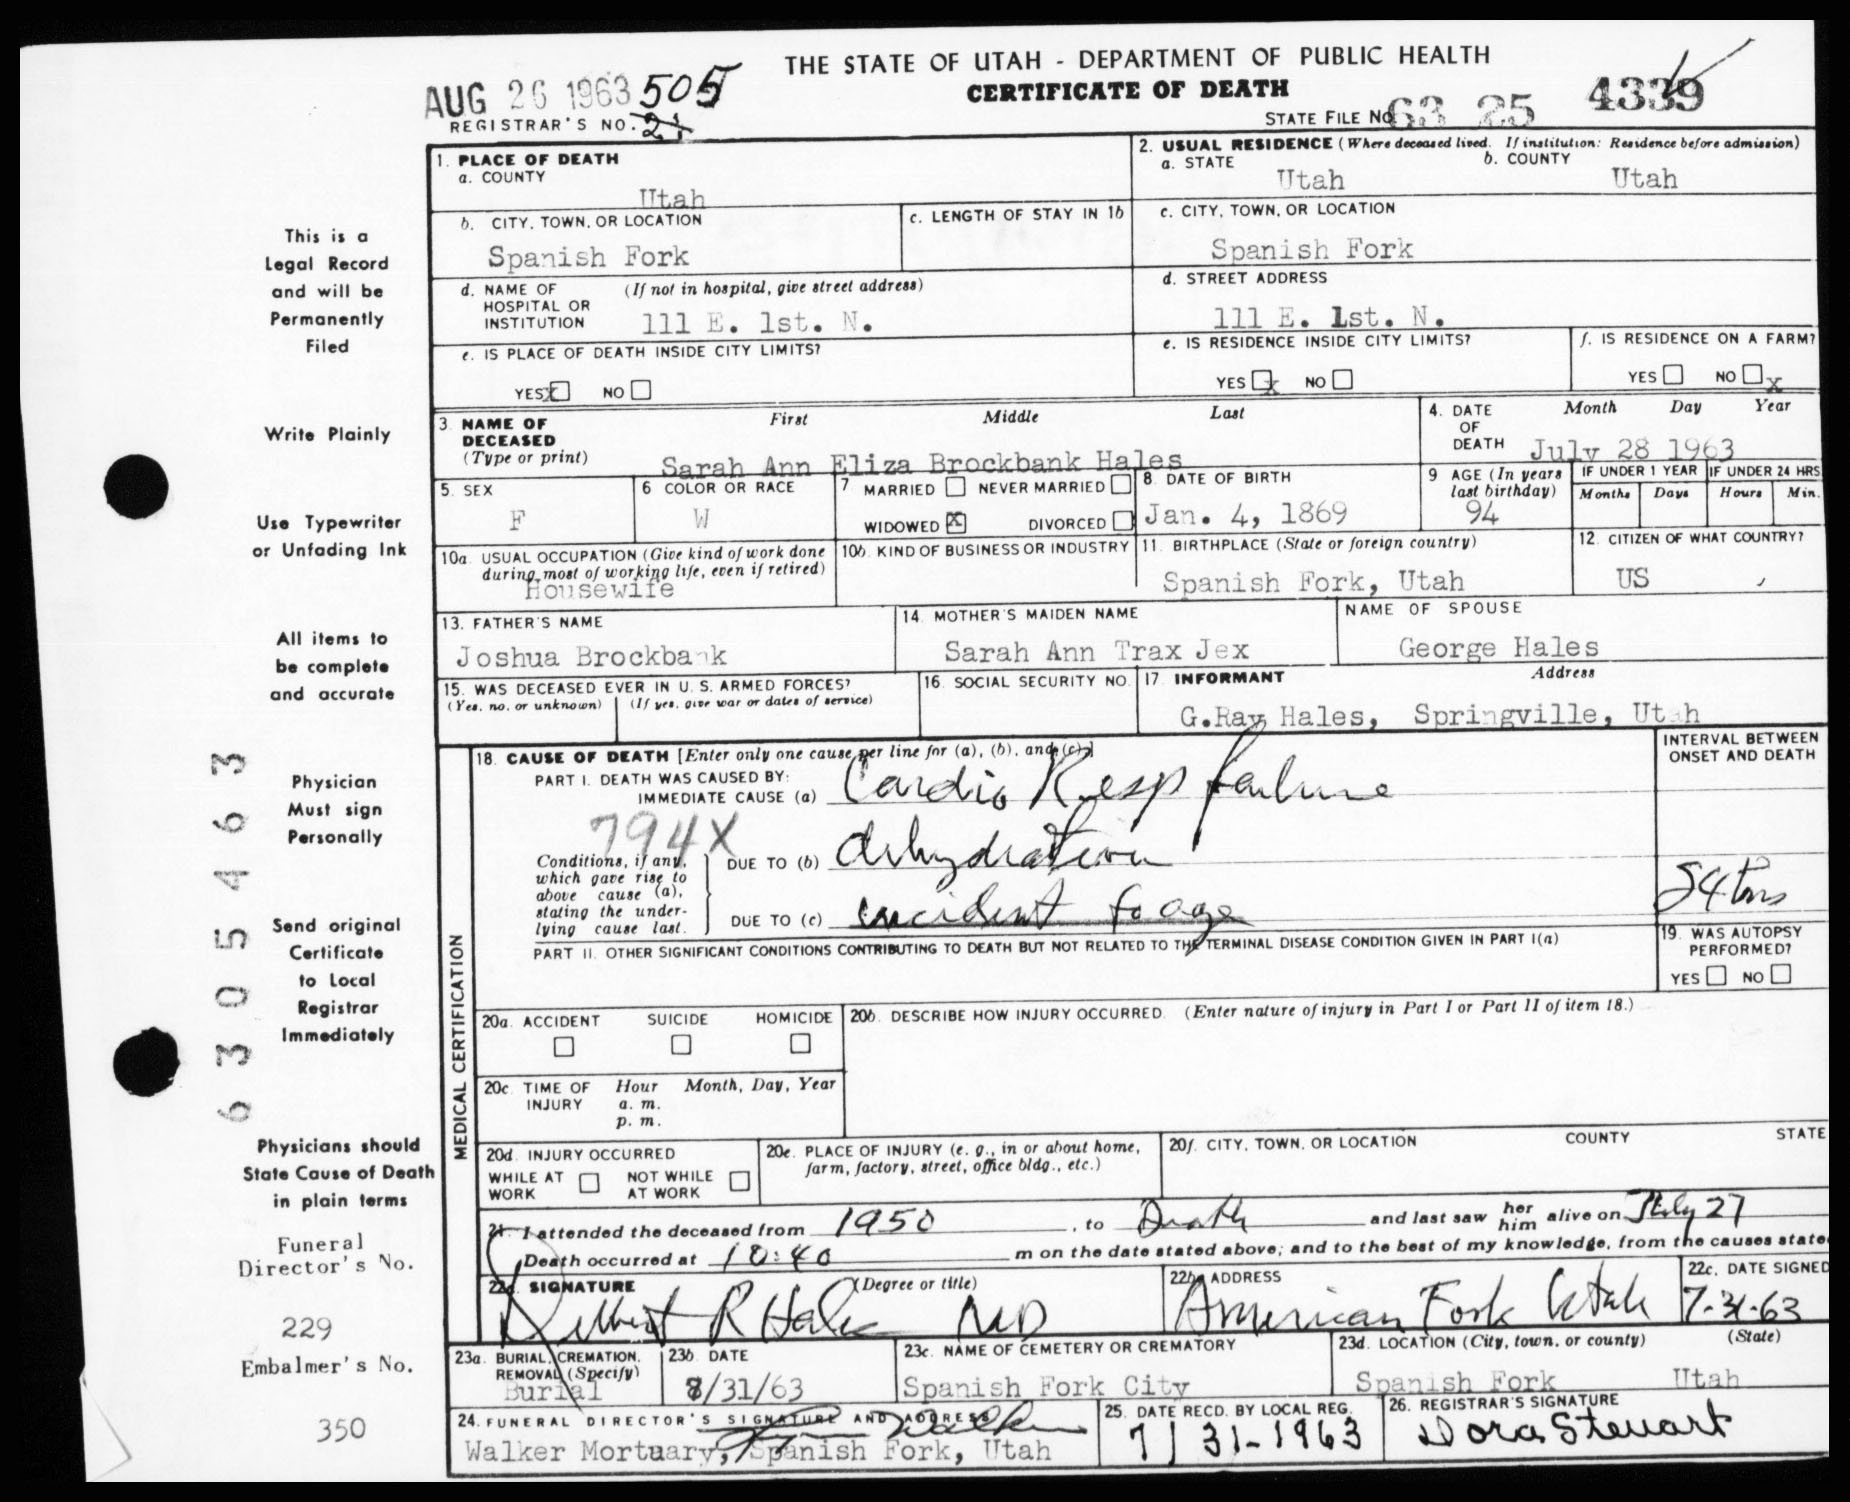 THE STATE OF UTAH - DEPARTMENT OF PUBLIC HEALTH
CERTIFICATE OF DEATH
AUG 26 1963 505
REGISTRAR'S NO.
STATE FILE NO. 63 25 4339
1. PLACE OF DEATH
a. COUNTY
Utah
2. USUAL RESIDENCE (Where deceased lived. If institution: Residence before admission)
a. STATE b. COUNTY
Utah Utah
b. CITY, TOWN, OR LOCATION
Spanish Fork
c. LENGTH OF STAY IN 1b
c. CITY, TOWN, OR LOCATION
Spanish Fork
d. NAME OF HOSPITAL OR INSTITUTION (If not in hospital, give street address)
111 E. 1st. N.
d. STREET ADDRESS
111 E. 1st. N.
e. IS PLACE OF DEATH INSIDE CITY LIMITS?
YES X NO
e. IS RESIDENCE INSIDE CITY LIMITS?
YES X NO
f. IS RESIDENCE ON A FARM?
YES NO X
3. NAME OF DECEASED (Type or print)
First Middle Last
Sarah Ann Eliza Brockbank Hales
4. DATE OF DEATH
Month Day Year
July 28 1963
5. SEX
F
6 COLOR OR RACE
W
7 MARRIED NEVER MARRIED
WIDOWED X DIVORCED
8. DATE OF BIRTH
Jan. 4, 1869
9 AGE (In years last birthday)
94
IF UNDER 1 YEAR
Months Days
IF UNDER 24 HRS
Hours Min.
10a. USUAL OCCUPATION (Give kind of work done during most of working life, even if retired)
Housewife
10b. KIND OF BUSINESS OR INDUSTRY
11. BIRTHPLACE (State or foreign country)
Spanish Fork, Utah
12. CITIZEN OF WHAT COUNTRY?
US
13. FATHER'S NAME
Joshua Brockbank
14. MOTHER'S MAIDEN NAME
Sarah Ann Trax Jex
NAME OF SPOUSE
George Hales
15. WAS DECEASED EVER IN U. S. ARMED FORCES?
(Yes, no, or unknown) (If yes, give war or dates of service)
16. SOCIAL SECURITY NO.
17. INFORMANT Address
G.Ray Hales, Springville, Utah
MEDICAL CERTIFICATION
18. CAUSE OF DEATH [Enter only one cause per line for (a), (b), and (c).]
INTERVAL BETWEEN ONSET AND DEATH
PART I. DEATH WAS CAUSED BY:
IMMEDIATE CAUSE (a) Cardio Resp failure
794X
Conditions, if any, which gave rise to above cause (a), stating the underlying cause last.
DUE TO (b) dehydration
DUE TO (c) incident to age
PART II. OTHER SIGNIFICANT CONDITIONS CONTRIBUTING TO DEATH BUT NOT RELATED TO THE TERMINAL DISEASE CONDITION GIVEN IN PART I(a)
19. WAS AUTOPSY PERFORMED?
YES NO
20a. ACCIDENT SUICIDE HOMICIDE
20b. DESCRIBE HOW INJURY OCCURRED. (Enter nature of injury in Part I or Part II of item 18.)
20c. TIME OF INJURY Hour Month, Day, Year
a. m.
p. m.
20d. INJURY OCCURRED
WHILE AT WORK NOT WHILE AT WORK
20e. PLACE OF INJURY (e. g., in or about home, farm, factory, street, office bldg., etc.)
20f. CITY, TOWN, OR LOCATION COUNTY STATE
21. I attended the deceased from 1950, to Death and last saw her him alive on July 27
Death occurred at 10:40 m on the date stated above; and to the best of my knowledge, from the causes state
22a. SIGNATURE (Degree or title)
Delbert R Hales MD
22b. ADDRESS
American Fork Utah
22c. DATE SIGNED
7-31-63
23a. BURIAL, CREMATION, REMOVAL (Specify)
Burial
23b. DATE
/31/63
23c. NAME OF CEMETERY OR CREMATORY
Spanish Fork City
23d. LOCATION (City, town, or county) (State)
Spanish Fork Utah
24. FUNERAL DIRECTOR'S SIGNATURE AND ADDRESS
Walker
Walker Mortuary, Spanish Fork, Utah
25. DATE RECD. BY LOCAL REG.
7/31-1963
26. REGISTRAR'S SIGNATURE
Dora Stewart
This is a
Legal Record
and will be
Permanently
Filed
Write Plainly
Use Typewriter
or Unfading Ink
All items to
be complete
and accurate
Physician
Must sign
Personally
Send original
Certificate
to Local
Registrar
Immediately
Physicians should
State Cause of Death
in plain terms
Funeral
Director's No.
229
Embalmer's No.
350
6305463